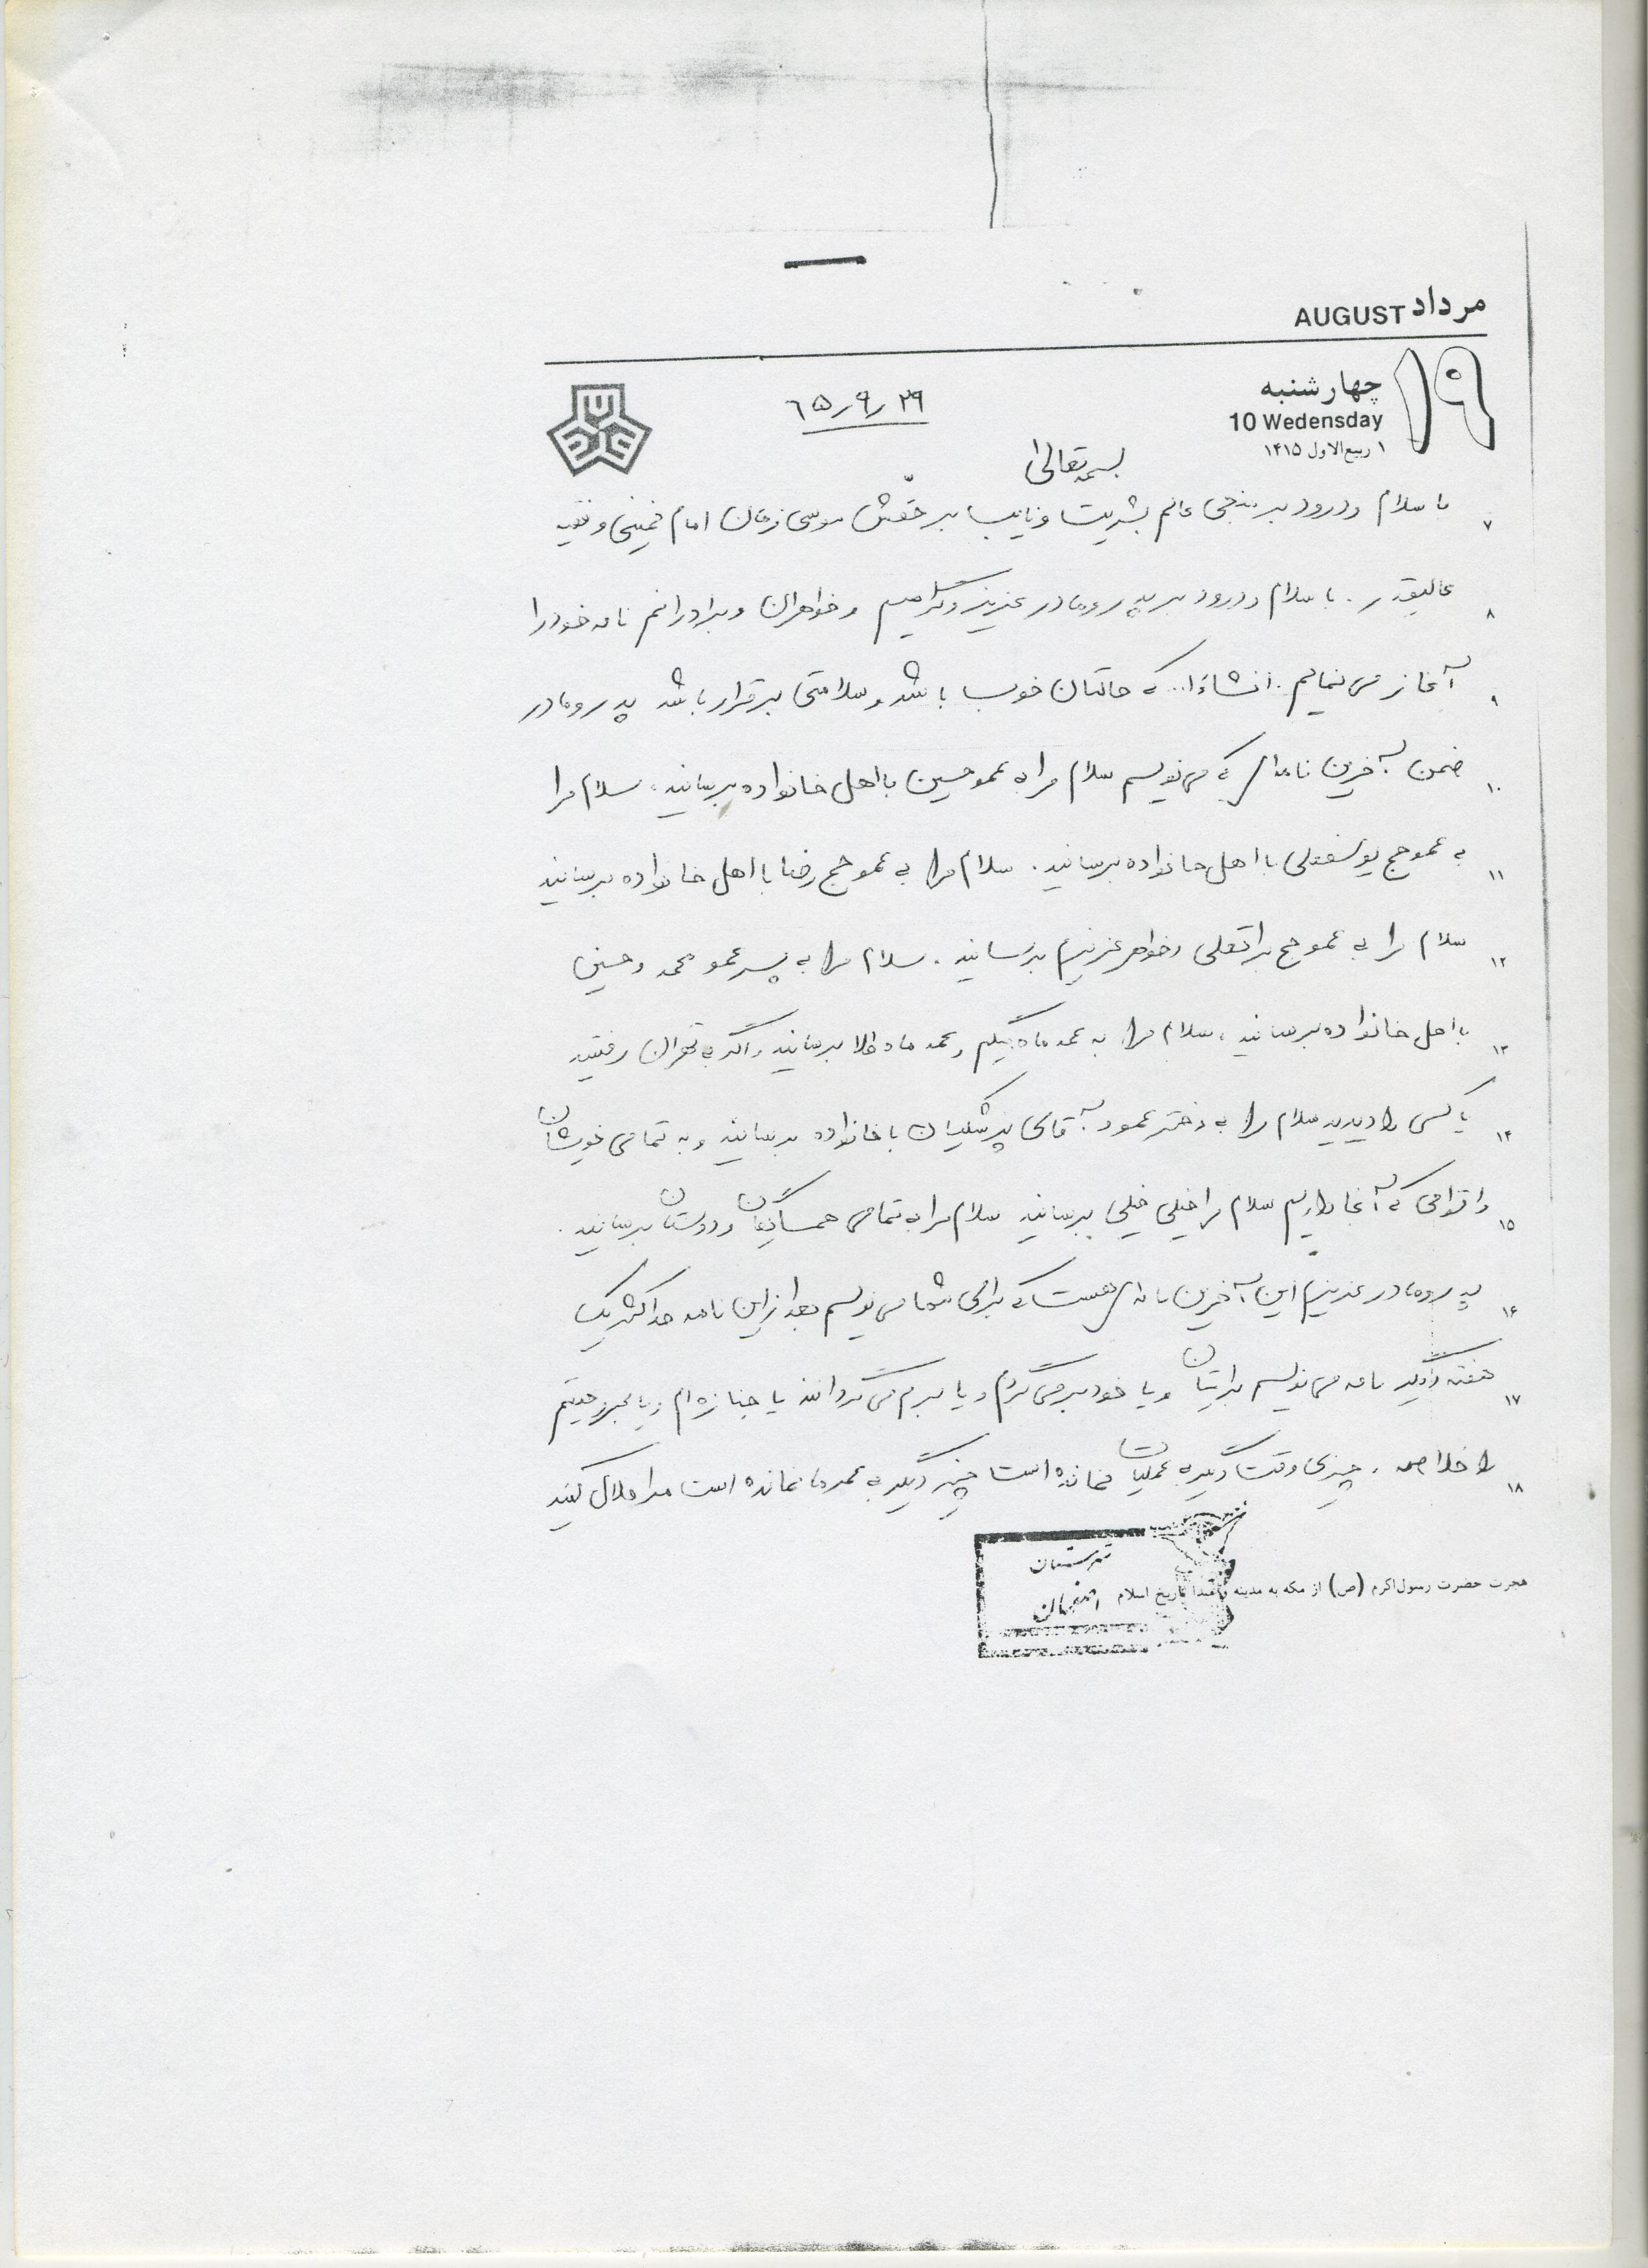 مرداد AUGUST
۱۹
چهارشنبه
10 Wedensday
۱ ربیع‌الاول ۱۴۱۵
۶۵/۹/۲۹
بسمه تعالی
۷ با سلام و درود بر منجی عالم بشریت و نایب بر حقّش موسی زمان امام خمینی و فقیه
۸ عالیقدر. با سلام و درود بر پدر و مادر عزیز و گرامیم و خواهران و برادرانم نامه خود را
۹ آغاز می نمایم. انشاءا... که حالتان خوب باشد و سلامتی برقرار باشد پدر و مادر
۱۰ ضمن آخرین نامه ای که می نویسم سلام مرا به عمو حسین با اهل خانواده برسانید، سلام مرا
۱۱ به عمو حج یوسفعلی با اهل خانواده برسانید. سلام مرا به عمو حج رضا با اهل خانواده برسانید
۱۲ سلام مرا به عمو حج براتعلی و خواهر عزیزم برسانید. سلام مرا به پسر عمو محمد و حسین
۱۳ با اهل خانواده برسانید، سلام مرا به عمه ماه بیگم و عمه ماه طلا برسانید و اگر به تهران رفتید
۱۴ یا کسی را دیدید سلام مرا به دختر عمو و آقای پزشکیان با خانواده برسانید و به تمامی خویشان
۱۵ و اقوامی که آنجا داریم سلام مرا خیلی خیلی برسانید سلام مرا به تمامی همسایگان و دوستان برسانید.
۱۶ پدر و مادر عزیزم این آخرین نامه ای هست که برای شما می نویسم بعد از این نامه حداکثر یک
۱۷ هفته دیگر نامه می نویسم برایتان و یا خود برمی گردم و یا برم می گردانند یا جنازه ام و یا
۱۸ را خلاصه. چیزی وقت دیگر به عملیات نمانده است چیز دیگر به عمر ما نمانده است مرا حلال کنید
هجرت حضرت رسول اکرم (ص) از مکه به مدینه و مبدأ تاریخ اسلام